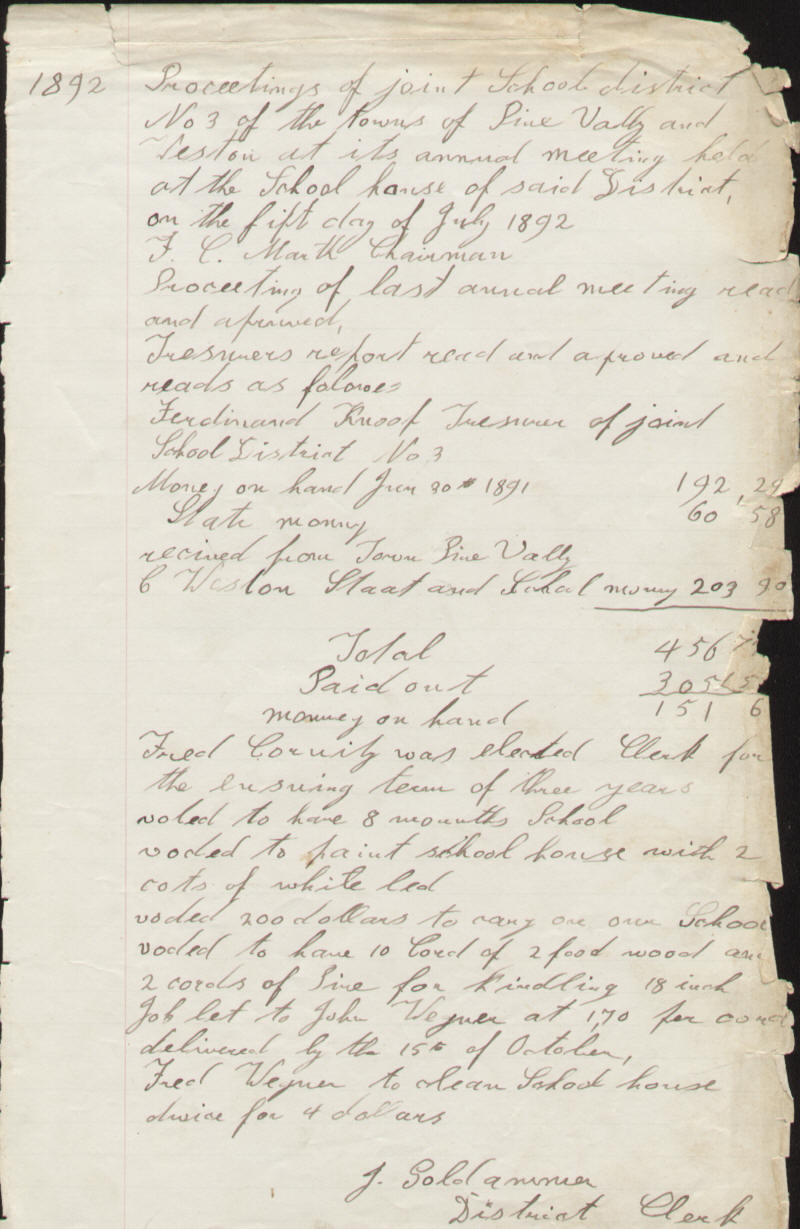 1892 Proceetings of joint School district
No 3 of the towns of Pine Vally and
Weston at its annual meeting held
at the School house of said District,
on the fift day of July 1892
F. C. Marth Chairman
Proceeting of last annual meeting read
and apruved,
Tresurers report read and aproved and
reads as folowes
Ferdinand Knoof Tresurer of joint
School District No 3
Money on hand Jun 30th 1891 192,29
State monny 60 58
recived from Town Pine Vally
Weston Staat and Schal monny 203 90
Total 456 7
Paid out 305 15
monney on hand 151 6
Fred was elected Clerk for
the ensuing term of three years
voted to have 8 mounths School
voded to paint school house with 2
cots of white led
voded 200 dollars to cary on our School
voded to have 10 Cord of 2 food wood an
2 cords of Pine for kindling 18 inch
Job let to John Wegner at 1,70 per cord
delivered by the 15th of October,
Fred Wegner to clean School house
dwice for 4 dollars
J. Goldammer
District Clerk